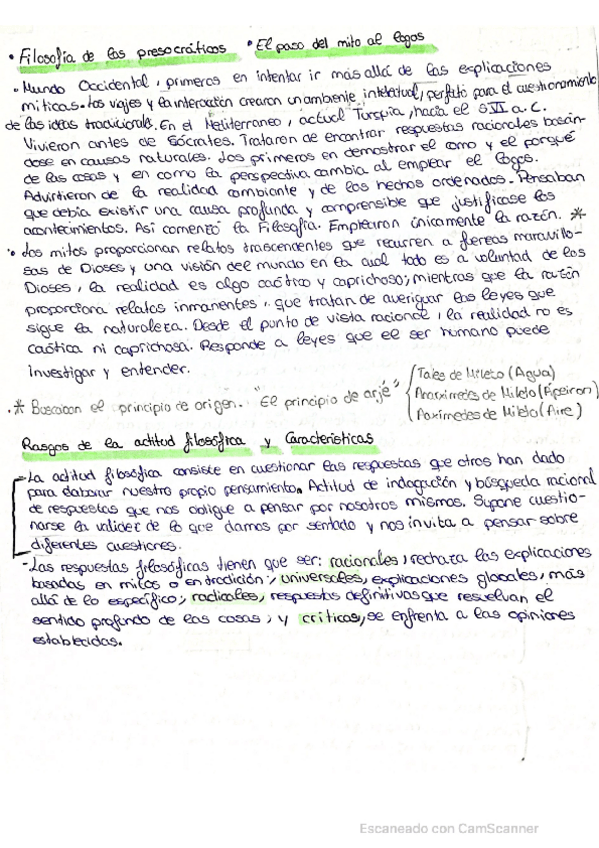 • Filosofía de los presocráticos • El paso del mito al logos
• Mundo Occidental, primeros en intentar ir más allá de las explicaciones
míticas. Los viajes y la interacción crearon un ambiente intelectual, perfecto para el cuestionamiento
de las ideas tradicionales. En el Mediterraneo, actual Turquía, hacia el S VI a.C.
Vivieron antes de Sócrates. Trataron de encontrar respuestas racionales basán-
dose en causas naturales. Los primeros en demostrar el como y el porqué
de las cosas y en como la perspectiva cambia al emplear el logos.
Advirtieron de la realidad cambiante y de los hechos ordenados. Pensaban
que debía existir una causa profunda y comprensible que justificase los
acontecimientos. Así comenzó la Filosofía. Emplearon únicamente la razón. *
• Los mitos proporcionan relatos trascendentes que recurren a fuerzas maravillo-
sas de Dioses y una visión del mundo en la cual todo es a voluntad de los
Dioses, la realidad es algo caótico y caprichoso; mientras que la razón
proporciona relatos inmanentes, que tratan de averiguar las leyes que
sigue la naturaleza. Desde el punto de vista racional, la realidad no es
caótica ni caprichosa. Responde a leyes que el ser humano puede
investigar y entender.
• * Buscaban el principio de origen. "El principio de arjé"
Tales de Mileto (Agua)
Anaximedes de Mileto (Ápeiron)
Aaxímedes de Mileto (Aire)
Rasgos de la actitud filosófica y Características
- La actitud filosófica consiste en cuestionar las respuestas que otros han dado
para elaborar nuestro propio pensamiento. Actitud de indagación y búsqueda racional
de respuestas que nos obligue a pensar por nosotros mismos. Supone cuestio-
narse la validez de lo que damos por sentado y nos invita a pensar sobre
diferentes cuestiones.
- Las respuestas filosóficas tienen que ser: racionales, rechaza las explicaciones
basadas en mitos o en tradición; universales, explicaciones globales, más
allá de lo específico; radicales, respuestas definitivas que resuelvan el
sentido profundo de las cosas; y críticas, se enfrenta a las opiniones
establecidas.
Escaneado con CamScanner